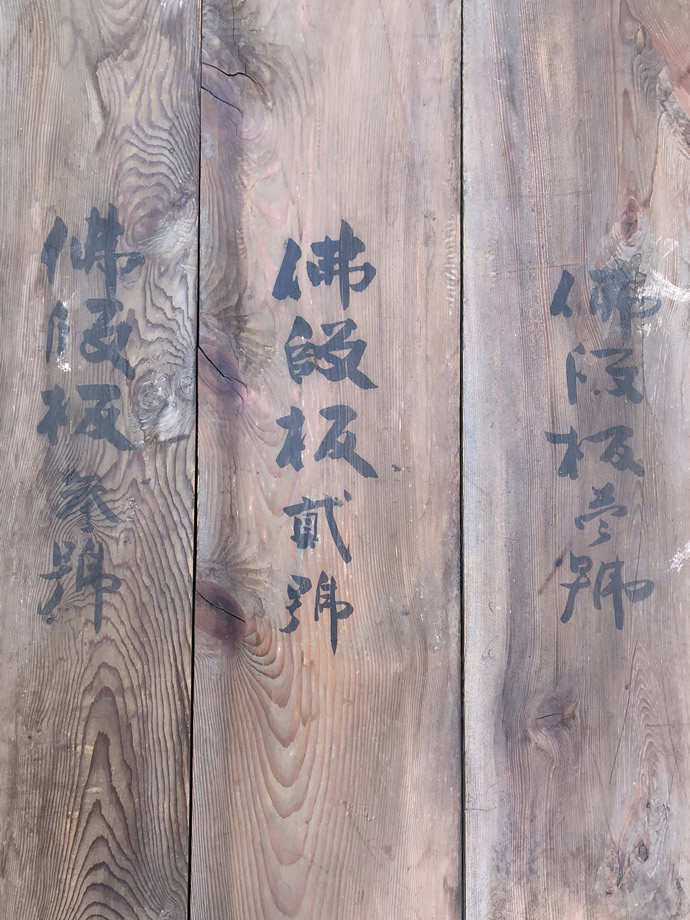 佛段板壹號
佛段板貳號
佛段板參號